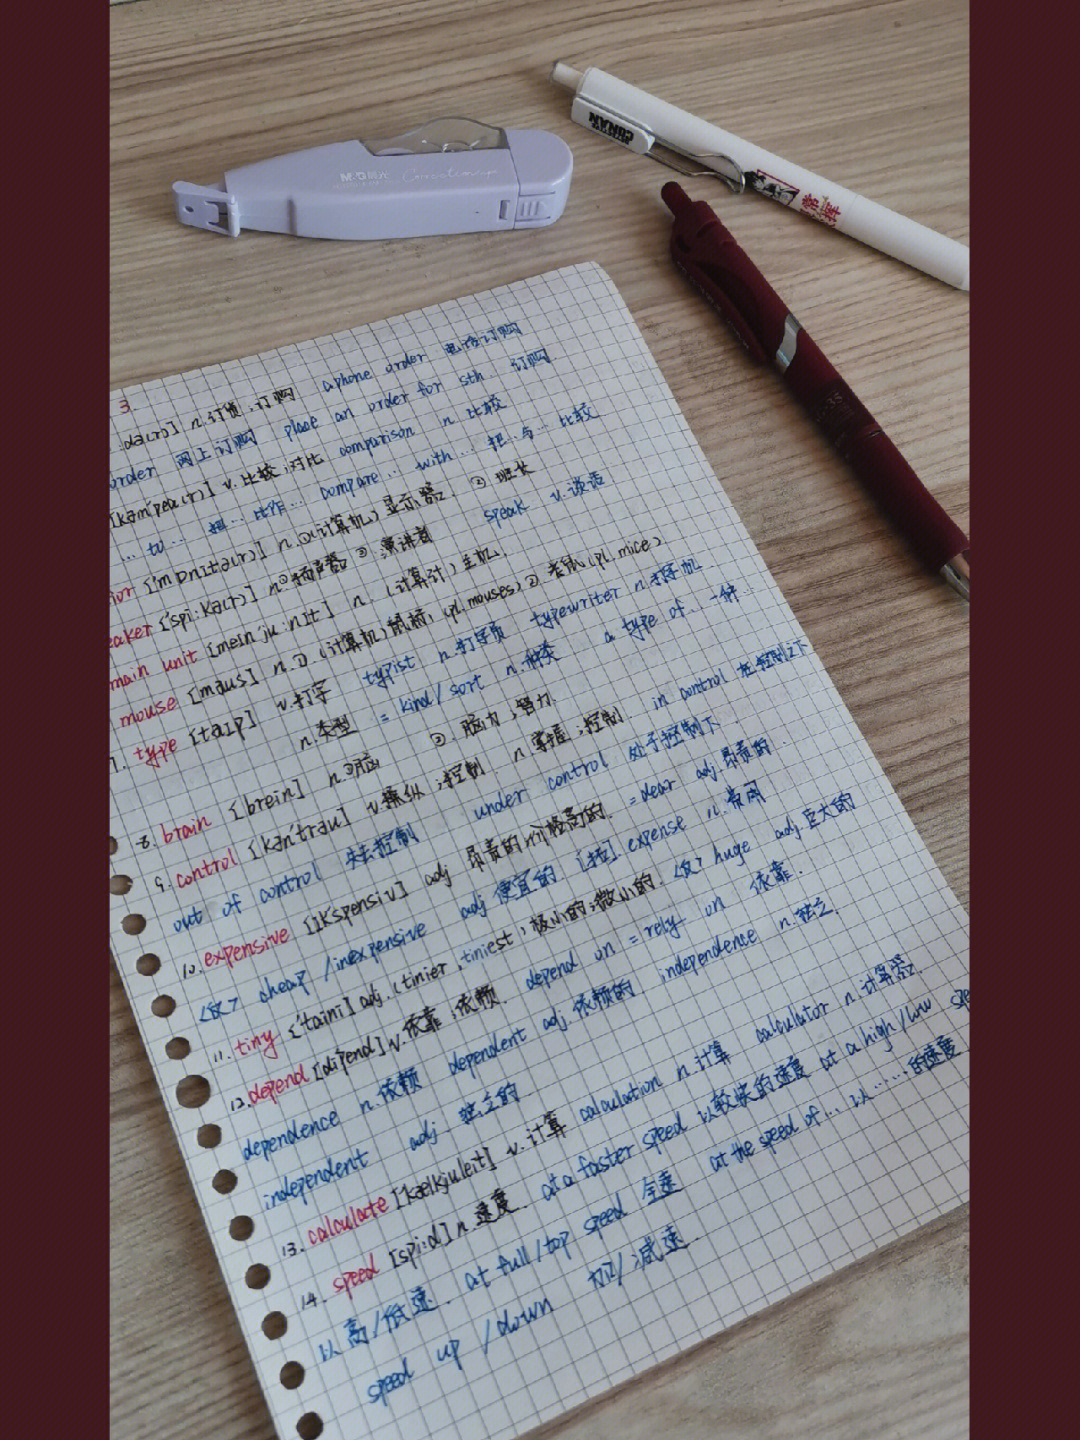 M&G 晨光 Correction tape
CONAN
3.
də(r)] n.订货,订购 a phone order 电话订购
order 网上订购 place an order for sth. 订购
[kəm'peə(r)] v.比较,对比 comparison n 比较
… to … 把…比作… compare… with… 把…与…比较
tor ['mɒnɪtə(r)] n.①(计算机)显示器. ② 班长
eaker ['spi:kə(r)] n①扬声器 ② 演讲者 speak v.谈话
main unit [meɪn 'ju:nɪt] n (计算计)主机.
mouse [maus] n.①.(计算机)鼠标,(pl.mouses)② 老鼠(pl.mice)
7. type [taɪp] v.打字 typist n.打字员 typewriter n.打字机
n.类型 = kind/sort n.种类 a type of 一种…
8. brain [breɪn] n.①脑 ②.脑力,智力
9. control [kən'trəu] v.操纵,控制 n.掌握,控制. in control 在控制之下
out of control 失去控制 under control 处于控制下
10. expensive [ɪkspensɪv] adj 昂贵的,价格高的. =dear adj.昂贵的.
<反> cheap /inexpensive adj 便宜的 [拓].expense n.费用
11. tiny ['taɪni] adj.(tinier,tiniest)极小的;微小的. <反> huge adj.巨大的
12. depend [dɪ'pend] v.依靠,依赖. depend on =rely on 依靠.
dependence n.依赖 dependent adj.依赖的 independence n.独立.
independent adj 独立的
13. calculate [kælkjuleɪt] v.计算 calculation n.计算 calculator n.计算器.
14. speed [spi:d] n.速度. at a faster speed 以较快的速度 at a high/low spe
以高/低速. at full/top speed 全速 at the speed of… 以……的速度
speed up /down 加/减速.